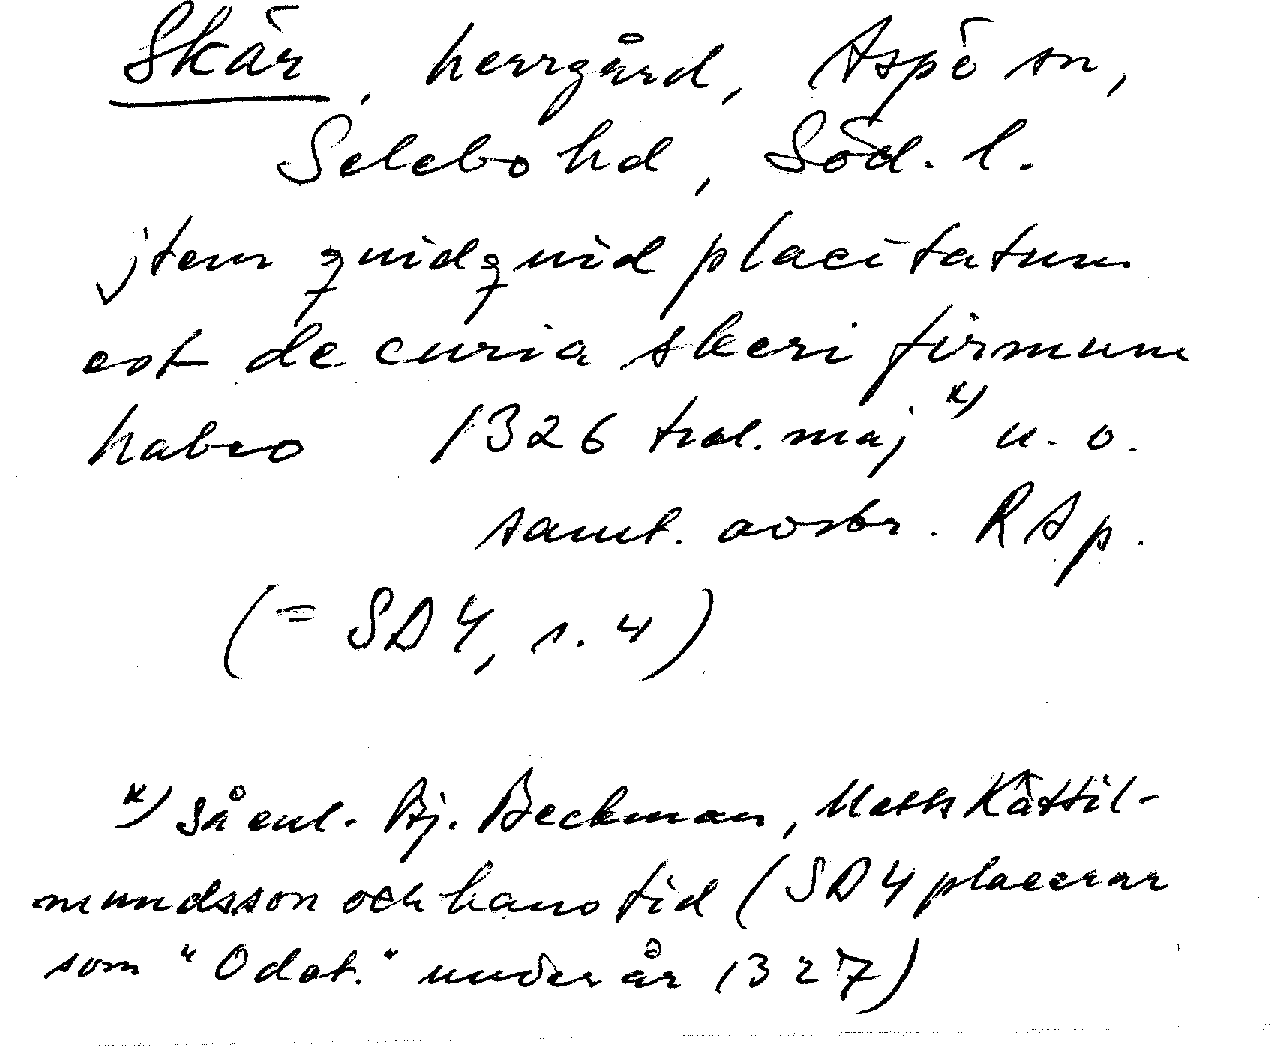 Skär, herrgård, Aspö sn,
Selebo hd, Söd. l.
jtem quidquid placitatum
est de curia skeri firmum
habeo 1326 trol. maj x) u. o.
samt. avskr. RAp.
(= SD 4, s. 4)
x) Så enl. Bj. Beckman, Mats Kättil-
mundsson och hans tid (SD 4 placerar
som "Odat." under år 1327)